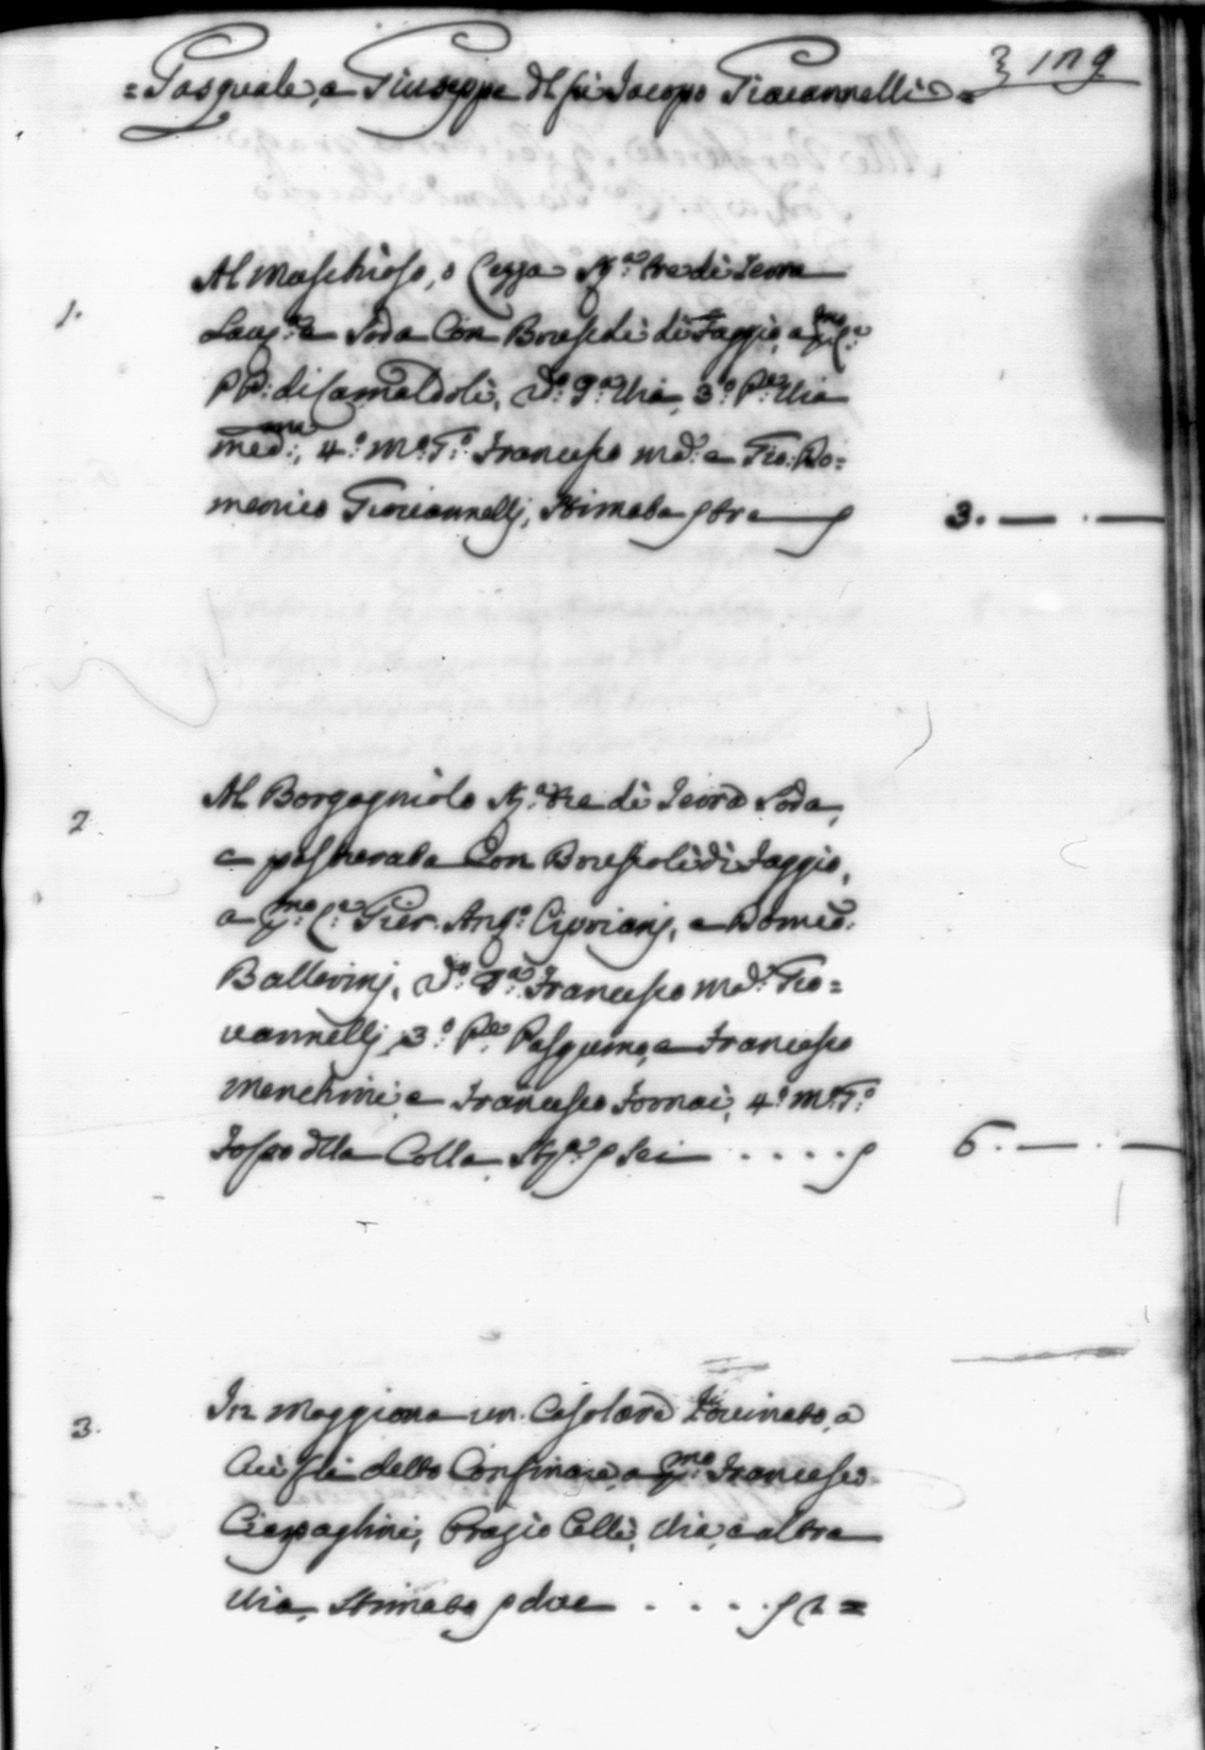 = Pasquale, e Giuseppe dl fù Iacopo Giovannelli =
1.
Al Maschioso, o Cezza St.a tre di Terra
Lau.ta e Soda Con Boschi di Faggio, a p.mo C.e
P P: di Camaldoli, 2.o P.a Via, 3.o P.te Via
med.ma, 4.o M.o T.o Francesco Md.o e Gio: Do=
menico Giovannellj, Stimata p tre
3. — . —
2
Al Borgogniolo St.a tre di Terra Soda,
e pasturata Con Boscholi di Faggio,
a p.mo C.e Pier. Ang.o Ciprianj, e Domco:
Ballerinj, 2.o P.a Francesco Md.o Gio=
vannellj, 3.o P.te Pasquino, e Francesco
Menchini e Francesco Fornai, 4.o M.o T.o
Fosso dlla Colla St.a p sei . . . .
6. — . —
3.
In Maggiona un Casolare Rovinato, a
Cui fù detto Confinare a p.mo Francesco
Ciapaghini, Orazio Celli, Via, e altra
Via, Stimato p due . . . . 2 =